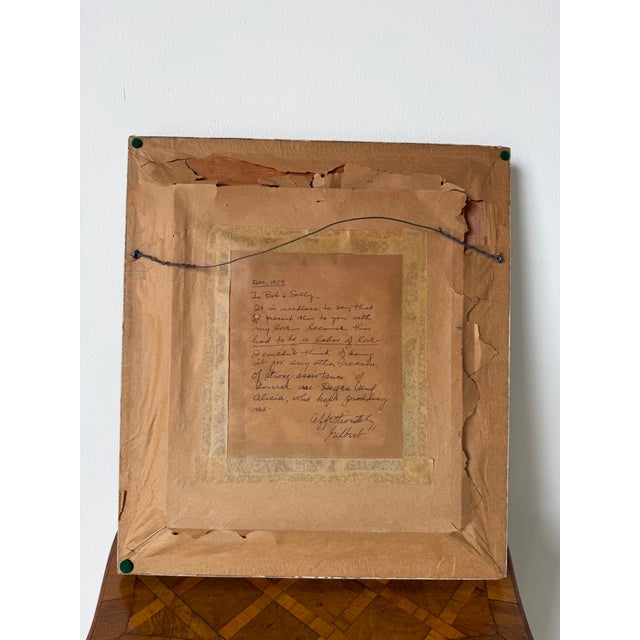 Dec. 1959
To Bob & Sally –
It is needless to say that
I present this to you with
my love – because this
had to be a labor of love –
I couldn't think of doing
it for any other reason.
Of strong assistance of
course are Degas and
Alicia, who kept prodding
me.
Affectionately,
Gilbert